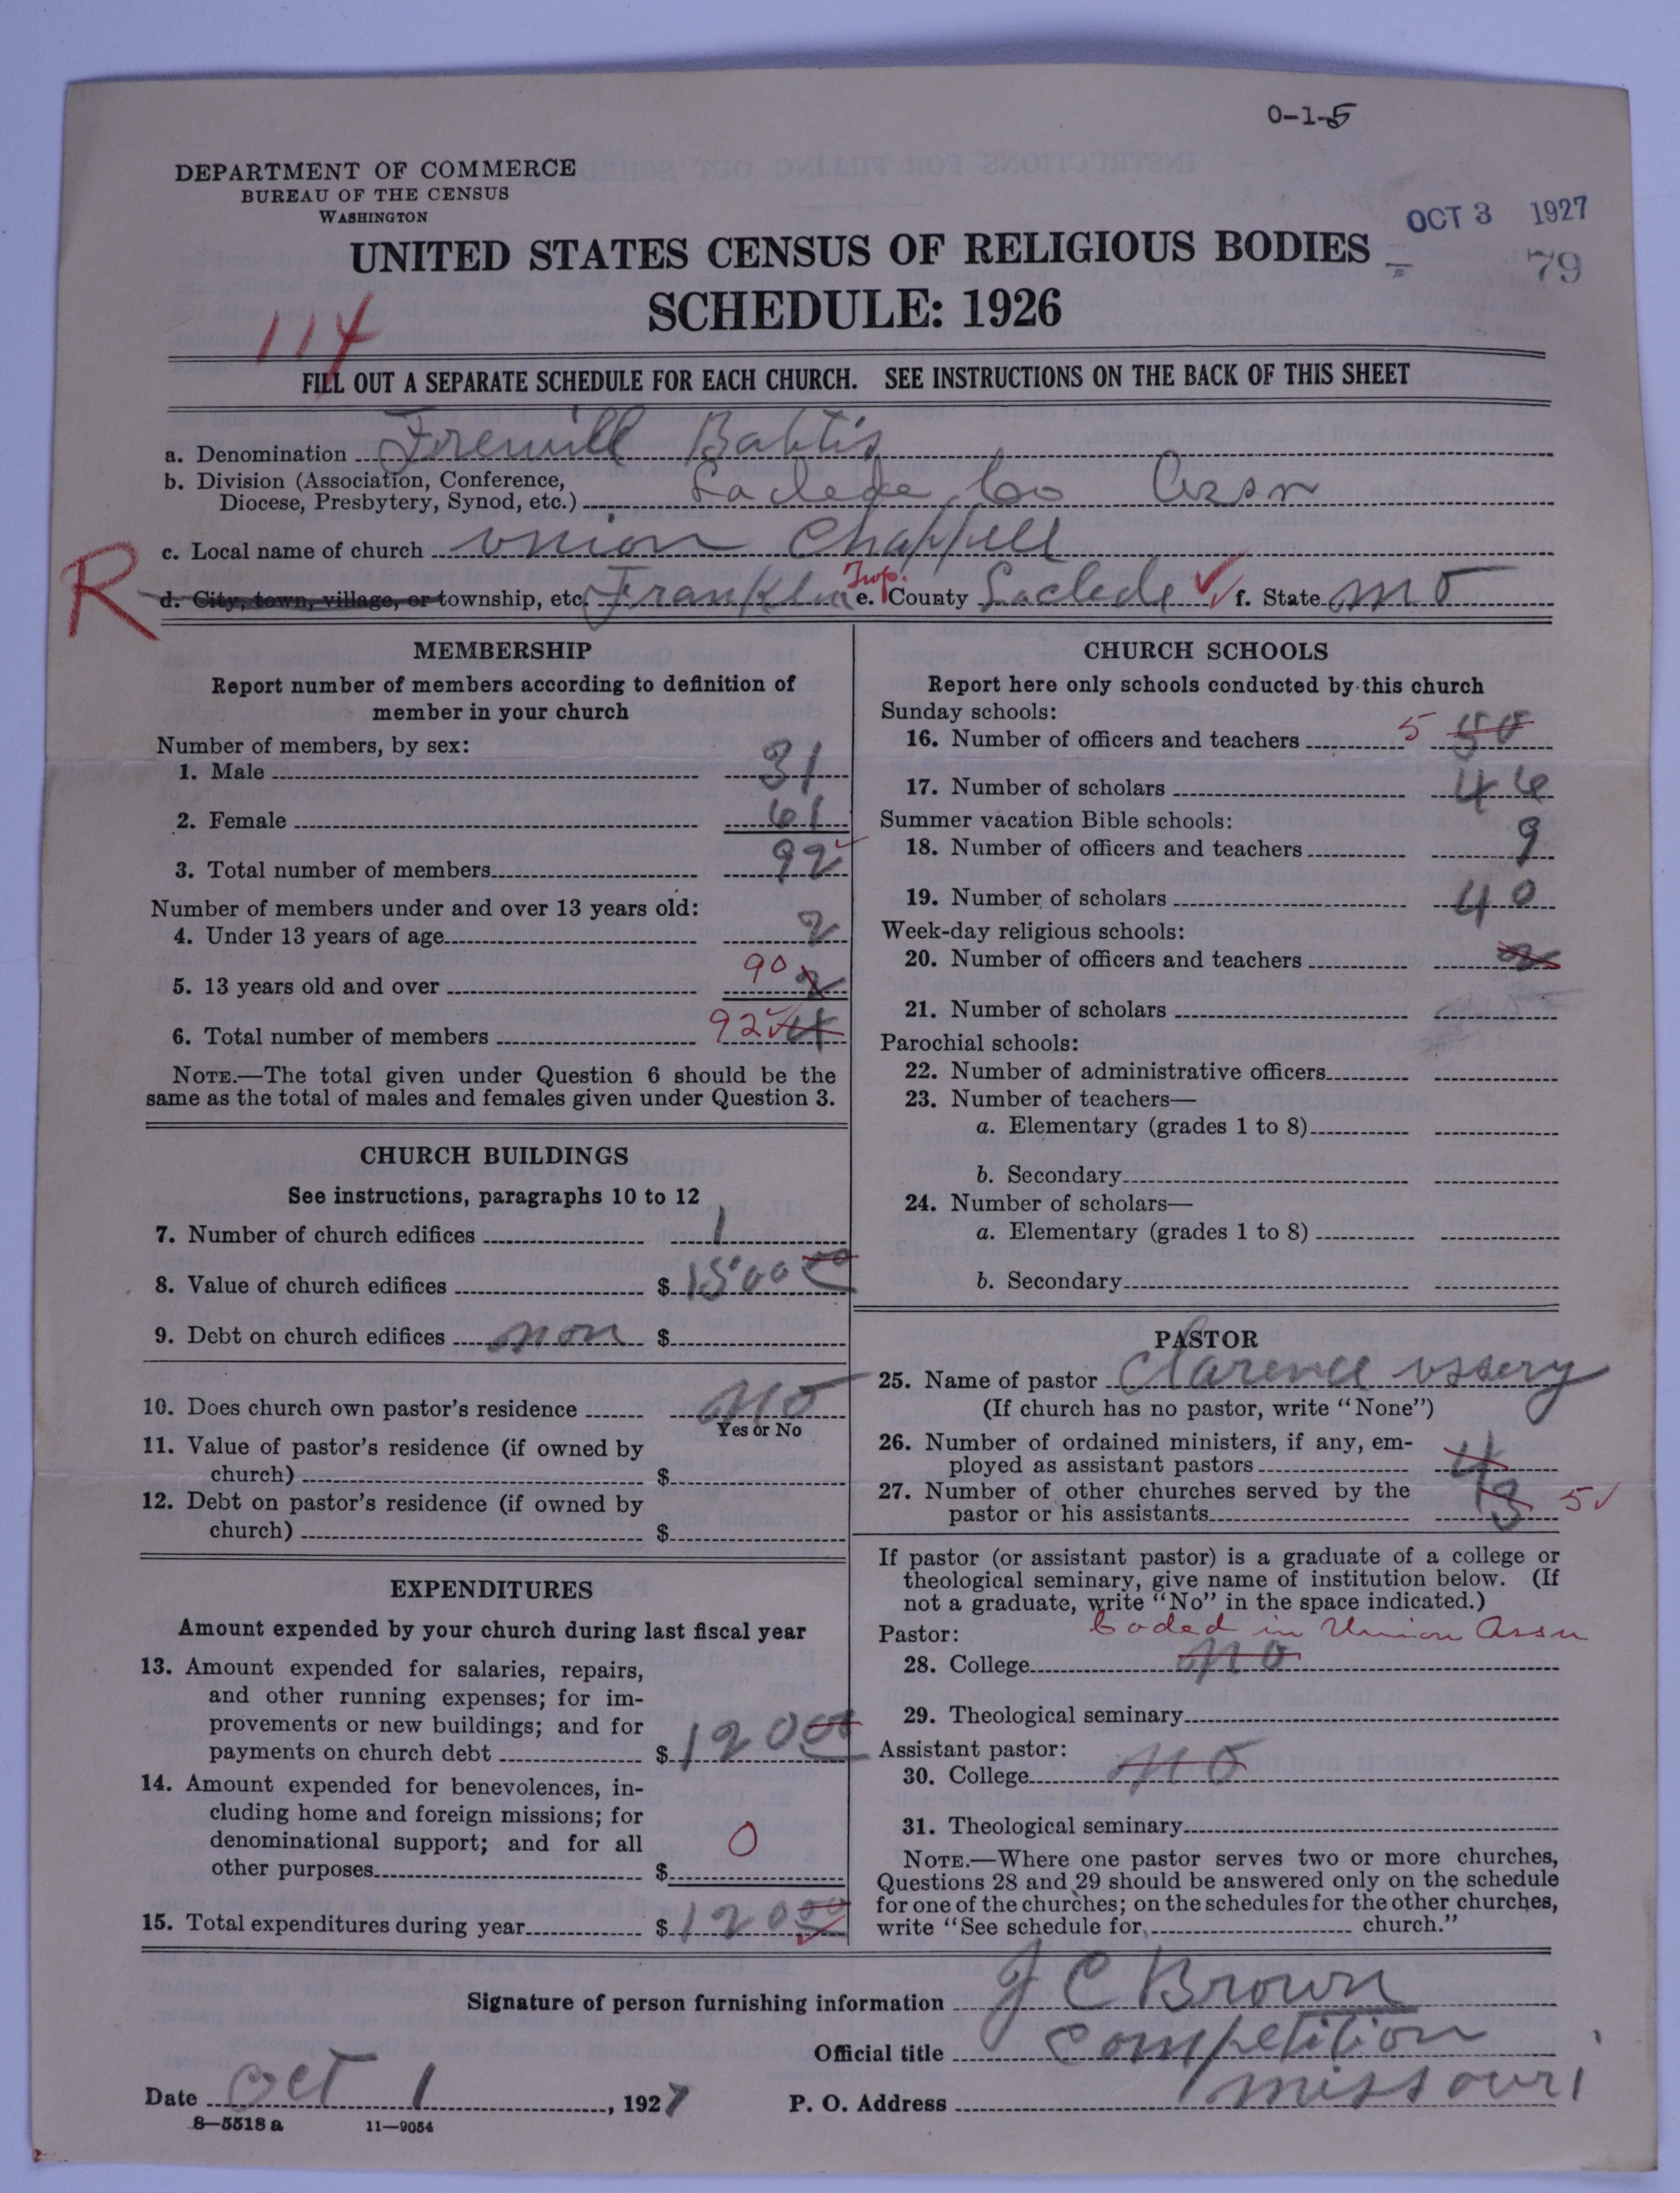 0-1-5
DEPARTMENT OF COMMERCE
BUREAU OF THE CENSUS
WASHINGTON
OCT 3 1927
UNITED STATES CENSUS OF RELIGIOUS BODIES
79
SCHEDULE: 1926
114
FILL OUT A SEPARATE SCHEDULE FOR EACH CHURCH. SEE INSTRUCTIONS ON THE BACK OF THIS SHEET
a. Denomination Frewill Babtis
b. Division (Association, Conference,
Diocese, Presbytery, Synod, etc.) Laclede Co Assn
c. Local name of church Union Chappell
R
d. City, town, village, or township, etc. Franklin Twp. e. County Laclede ✓ f. State Mo
MEMBERSHIP
Report number of members according to definition of
member in your church
Number of members, by sex:
1. Male 31
2. Female 61
3. Total number of members 92 ✓
Number of members under and over 13 years old:
4. Under 13 years of age 2
5. 13 years old and over 90 2
6. Total number of members 92 ✓ 4
NOTE.—The total given under Question 6 should be the
same as the total of males and females given under Question 3.
CHURCH BUILDINGS
See instructions, paragraphs 10 to 12
7. Number of church edifices 1
8. Value of church edifices $ 1500 00
9. Debt on church edifices non $
10. Does church own pastor's residence No
Yes or No
11. Value of pastor's residence (if owned by
church) $
12. Debt on pastor's residence (if owned by
church) $
EXPENDITURES
Amount expended by your church during last fiscal year
13. Amount expended for salaries, repairs,
and other running expenses; for im-
provements or new buildings; and for
payments on church debt $ 120 00
14. Amount expended for benevolences, in-
cluding home and foreign missions; for
denominational support; and for all
other purposes $ 0
15. Total expenditures during year $ 120 00
CHURCH SCHOOLS
Report here only schools conducted by this church
Sunday schools:
16. Number of officers and teachers 5 50
17. Number of scholars 46
Summer vacation Bible schools:
18. Number of officers and teachers 9
19. Number of scholars 40
Week-day religious schools:
20. Number of officers and teachers 2
21. Number of scholars
Parochial schools:
22. Number of administrative officers
23. Number of teachers—
a. Elementary (grades 1 to 8)
b. Secondary
24. Number of scholars—
a. Elementary (grades 1 to 8)
b. Secondary
PASTOR
25. Name of pastor Clarence Ussery
(If church has no pastor, write "None")
26. Number of ordained ministers, if any, em-
ployed as assistant pastors 4
27. Number of other churches served by the
pastor or his assistants 5 ✓
If pastor (or assistant pastor) is a graduate of a college or
theological seminary, give name of institution below. (If
not a graduate, write "No" in the space indicated.)
Pastor: Coded in Union Assn
28. College No
29. Theological seminary
Assistant pastor:
30. College No
31. Theological seminary
NOTE.—Where one pastor serves two or more churches,
Questions 28 and 29 should be answered only on the schedule
for one of the churches; on the schedules for the other churches,
write "See schedule for church."
Signature of person furnishing information J C Brown
Official title Competition
Date Oct 1, 1927 P. O. Address Missouri
8—5518 a 11—9054